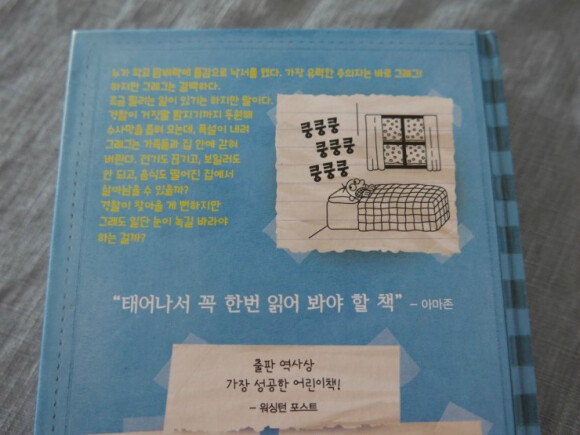 누가 학교 담벼락에 물감으로 낙서를 했다. 가장 유력한 용의자는 바로 그레그!
하지만 그레그는 결백하다.
조금 찔리는 일이 있기는 하지만 말이다.
경찰이 거짓말 탐지기까지 동원해
수사망을 좁혀 오는데, 폭설이 내려
그레그는 가족들과 집 안에 갇혀
버린다. 전기도 끊기고, 보일러도
안 되고, 음식도 떨어진 집에서
살아남을 수 있을까?
경찰이 찾아올 게 뻔하지만
그래도 일단 눈이 녹길 바라야
하는 걸까?
쿵쿵쿵
쿵쿵쿵
쿵쿵쿵
“태어나서 꼭 한번 읽어 봐야 할 책” – 아마존
출판 역사상
가장 성공한 어린이책!
– 워싱턴 포스트